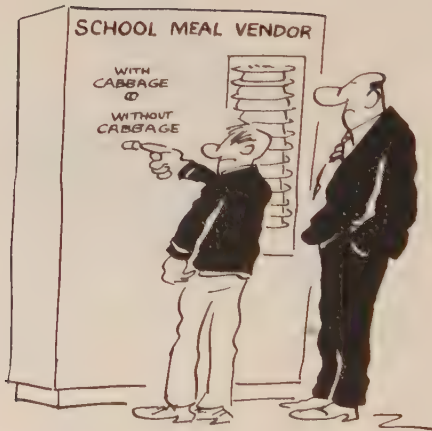 SCHOOL MEAL VENDOR
WITH
CABBAGE
WITHOUT
CABBAGE